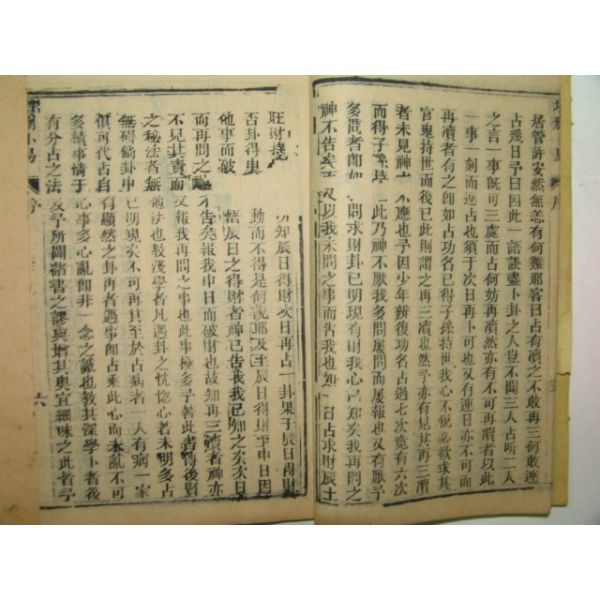 居管許安然無恙有何難耶客曰占有瀆之不敢再三何敢連
占幾日予曰因此一語誤盡卜卦之人豈不聞三人占听二人
之言一事既可三處而占何妨再瀆然亦有不可再瀆者以此
一事一刻而連占也須于次日再卜可也又有連日亦不可而
再瀆者有之即如占功名已得子孫持世我心不悅必欲求其
官鬼持世而後已此則謂之再三瀆也然予亦有見其再三瀆
者未見神 不應也予因少年辨復功名占過七次竟有六次
而得子孫持 此乃神不厭我多問屢問而屢報也又有
多問者即如 問求財卦已明現有財我心已知矣我再問之
神不告矣 及以我未問之事而告我也如 日占求財辰土
旺財持
知辰日得財次日再占一卦果于辰日得財
否卦得
動而不得是何説耶及至辰日得財 申日因
他事而破
悟辰日之得財者神已告我我已知之矣次日
而再問之 不告矣報我申日而破財也故知再三瀆者神亦
不見其責而 又報我再問之事也此事極多予著此書得後賢
之秘法者無 法也較淺學者凡遇卦之恍惚心者未明多占
無碍倘卦中 已明現矣不可再其至於占病者一人有病一家
俱可代占自有顯然之卦再者遇事即占乘此心而未亂不可
多積事情于心事多心亂即非一念之誠也教其深學卜者後
有分占之法及予所闢諸書之謬與增其奧宜細味之此者予
六